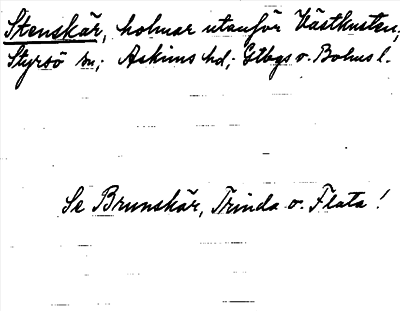 Stenskär, holmar utanför Västkusten,
Styrsö sn; Askims hd; Gtbgs o. Bohus l.
Se Brunskär, Trinda o. Flata!